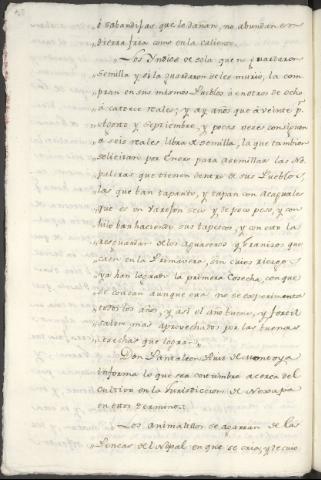 ó sabandijas que lo dañan, no abundan en
„ tierra fria como en la caliente.
„ Los Yndios de Sola que no guardaron
„ Semilla y si la guardaron se les murió, la com
„ pran en sus mismos Pueblos ó en otros de ocho
„ á catorce reales; y ay años que á veinte p.r
„ Agosto, y Septiembre, y pocas veces consiguen
„ á seis reales libra de semilla, la que tambien
„ solicitan por Enero para asemillar las No
„ paleras que tienen dentro de sus Pueblos,
„ las que tan tapanto, y tapan con Acaguales
„ que es un Varejon seco y de poco peso, y con
„ hilo han haciendo sus tapescos, y con esto la
„ resguardan de los aguaceros y granisos que
„ caen en la Primavera, sin cuio riesgo
„ ya han logrado la primera Cosecha, con que
„ se
„ todos los años, y asi el año bueno, y fertil
„ salen mas aprovechados por las buenas
„ cosechas que logran.
„ Don Pantaleon Ruiz de Montoya
„ informa lo que sea costumbre acerca del
„ cultivo en la Jurisdiccion de Nexapa
„ en estos terminos:
„ Los animalillos se agarran de las
„ Pencas del Nopal en que se crian, y de cuio